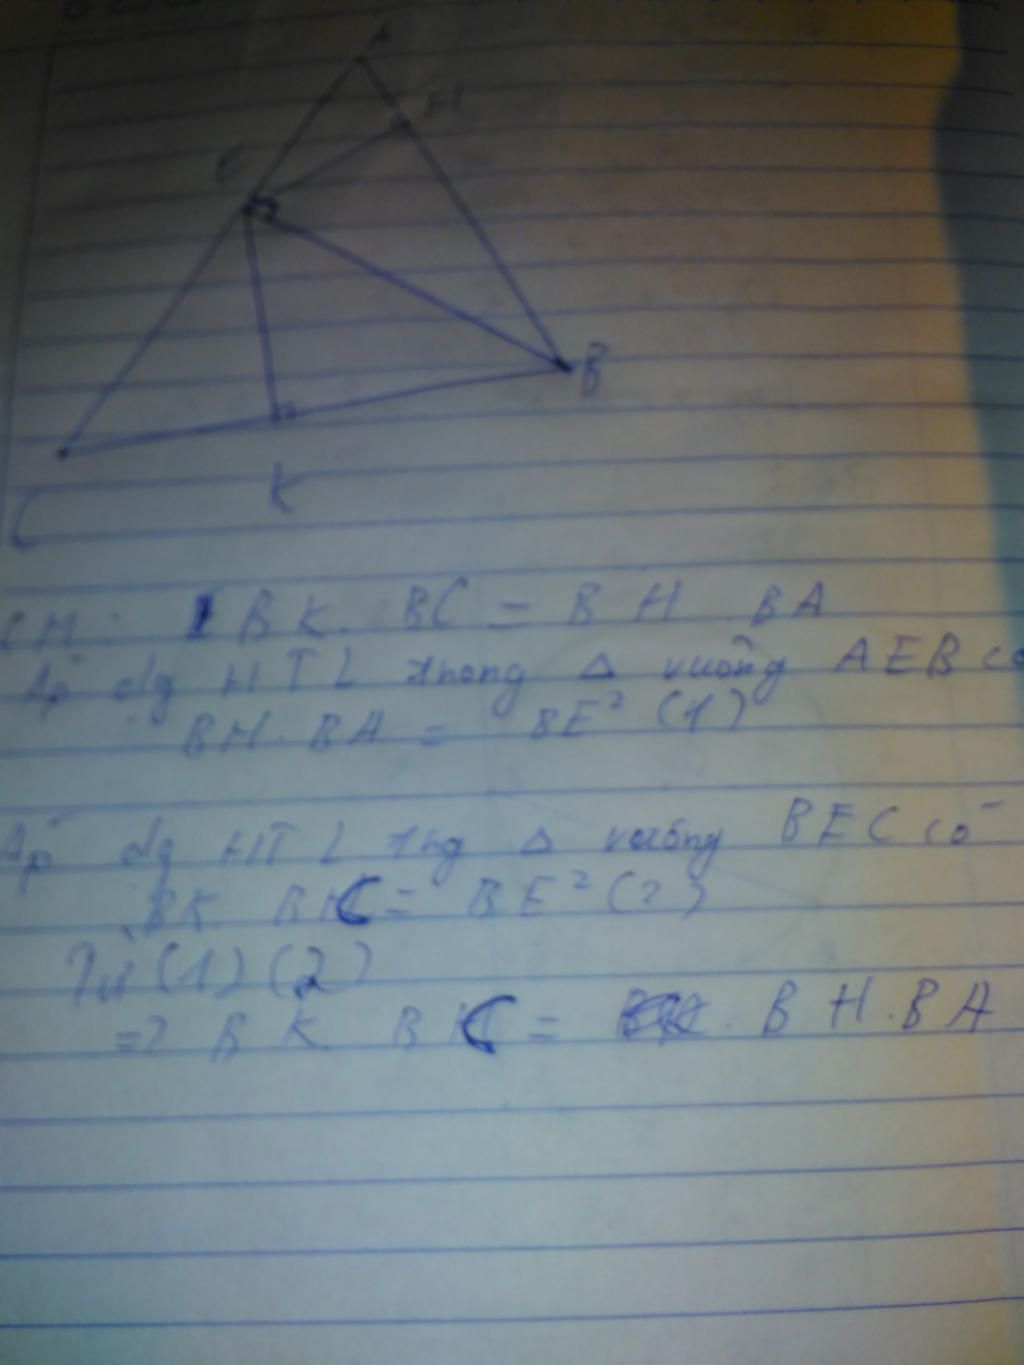 A
H
E
B
K
C
CM: BK. BC = BH. BA
Áp dg HTL trong Δ vuông AEB có
BH. BA = BE² (1)
Áp dg HTL trg Δ vuông BEC có
BK. BC = BE² (2)
Từ (1) (2)
=> BK. BC = BH.BA